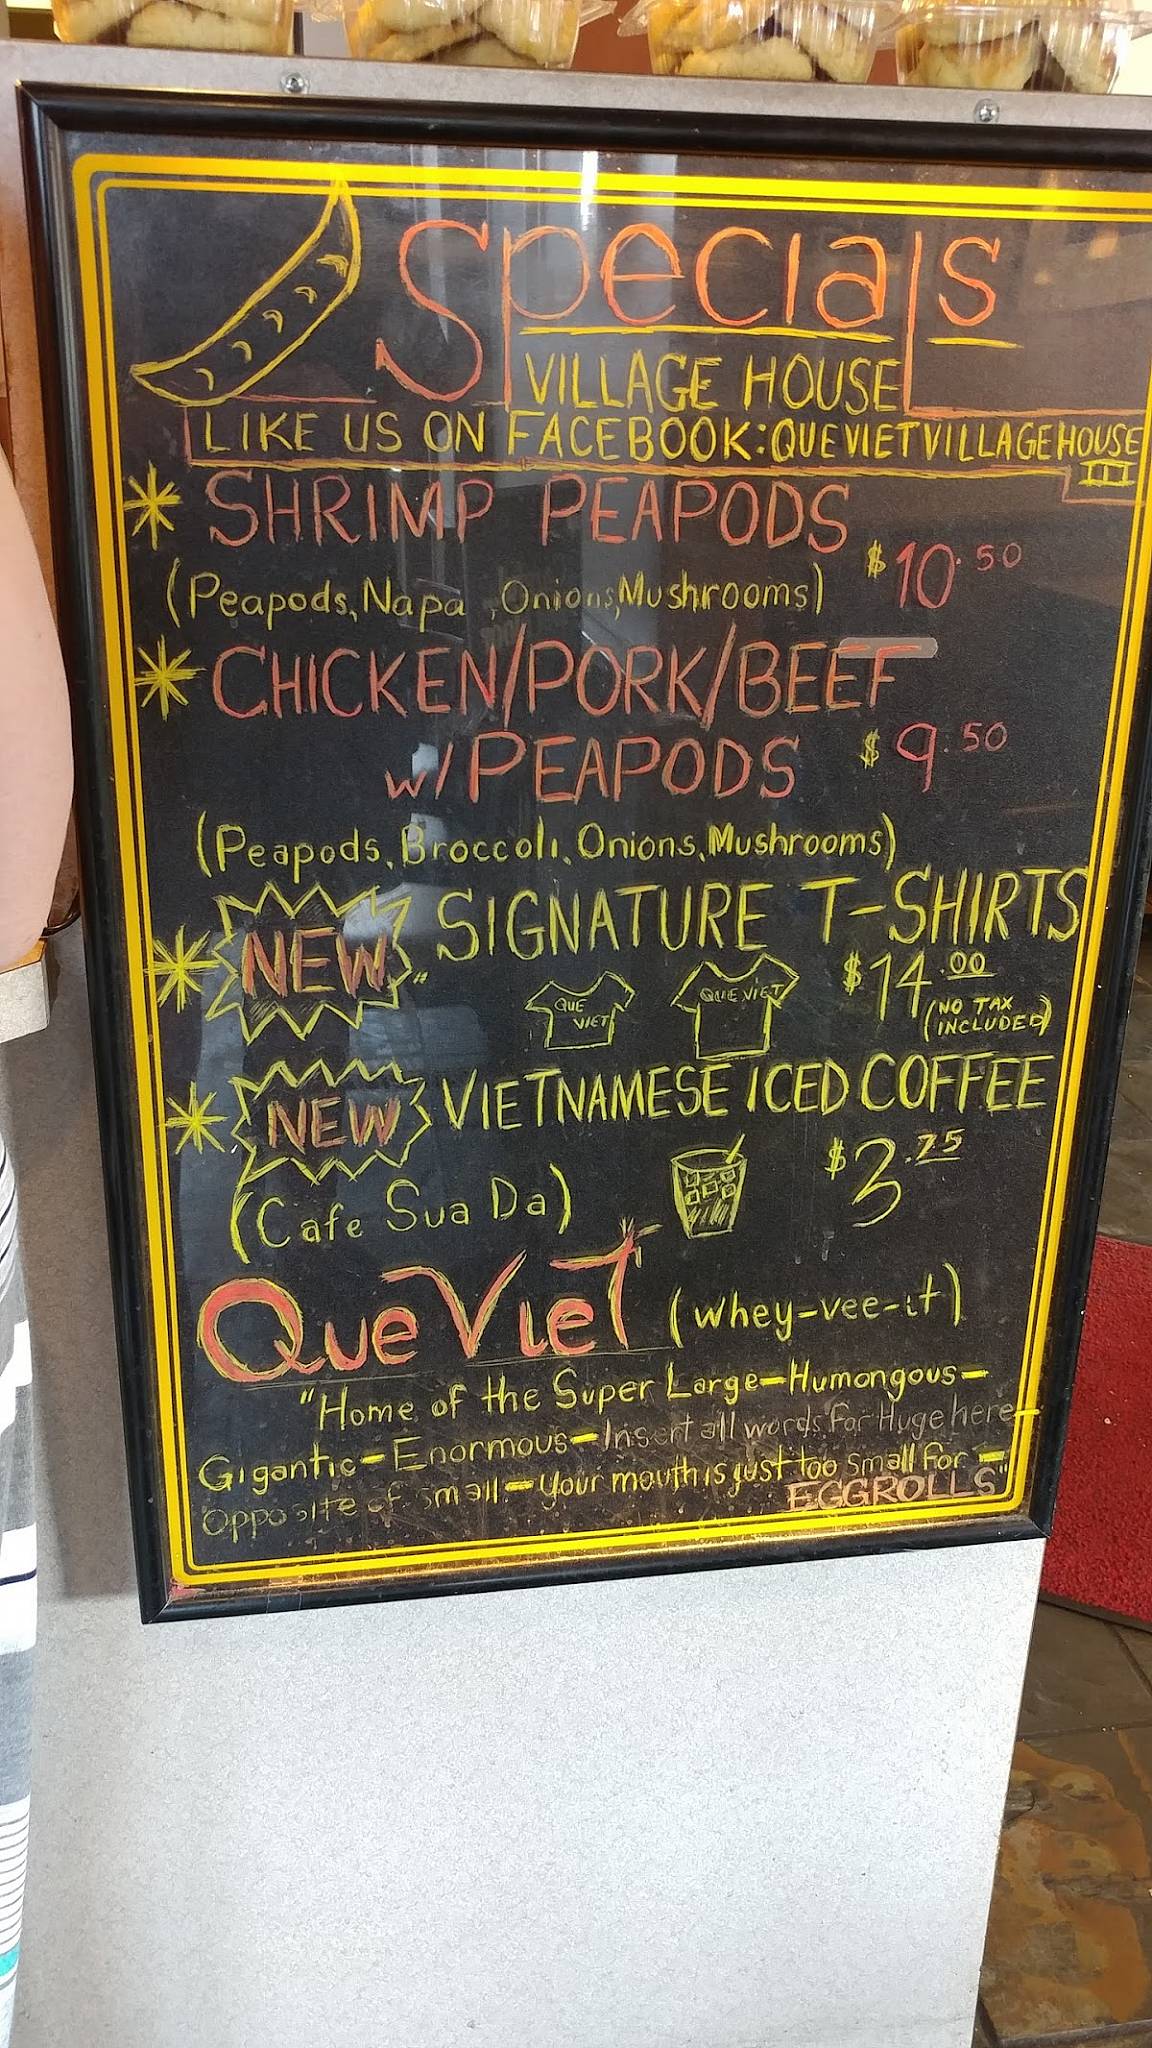 Specials
VILLAGE HOUSE
LIKE US ON FACEBOOK: QUEVIETVILLAGEHOUSE
III
SHRIMP PEAPODS
$10.50
(Peapods, Napa, Onions, Mushrooms)
CHICKEN/PORK/BEEF
w/ PEAPODS $9.50
(Peapods, Broccoli, Onions, Mushrooms)
NEW SIGNATURE T-SHIRTS
QUE VIET QUE VIET $14.00
(NO TAX INCLUDED)
NEW VIETNAMESE ICED COFFEE
(Cafe Sua Da) $3.75
Que Viet (whey-vee-it)
"Home of the Super Large-Humongous-
Gigantic-Enormous-Insert all words for Huge here-
opposite of small-your mouth is just too small for-
EGGROLLS"